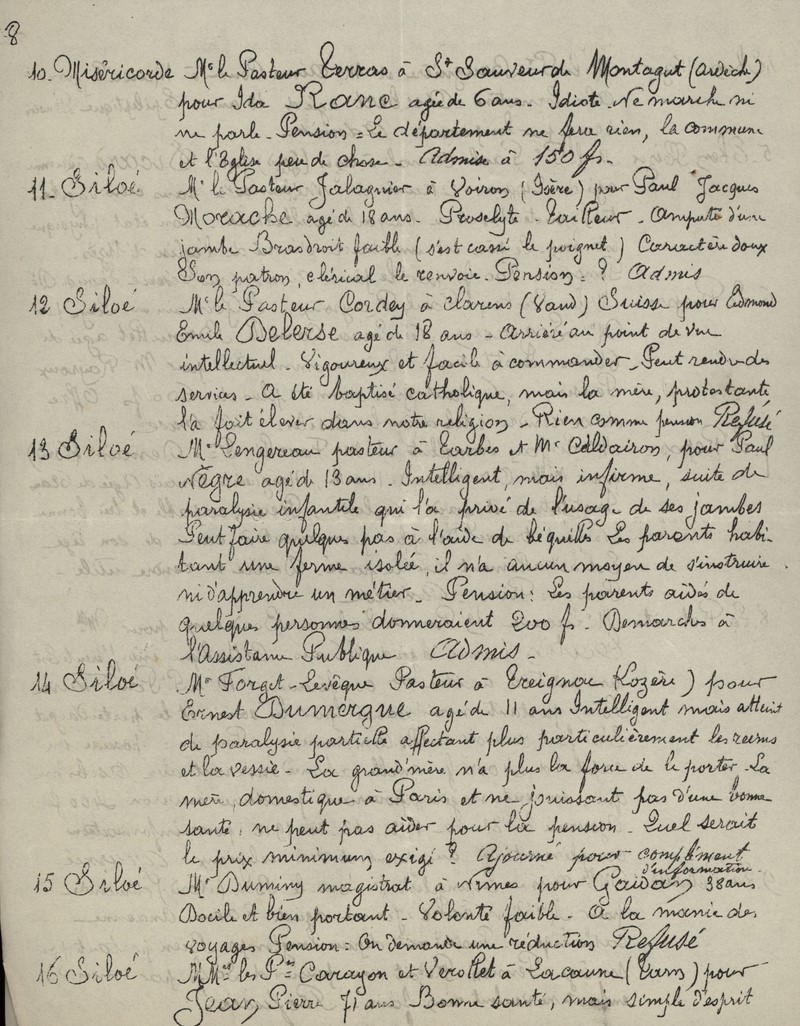 8
10. Miséricorde Mr le Pasteur Terras à St Sauveur de Montagut (Ardèche)
pour Ida Ranc agée de 6 ans. Idiote. Ne marche ni
ne parle. Pension = Le département ne fera rien, la commune
et l'Eglise peu de chose. Admise à 150 fs.
11. Siloé Mr le Pasteur Jalaguier à Voiron (Isère) pour Paul Jacques
Morache agé de 18 ans. Proselyte. Tailleur. Amputé d'une
jambe Bras droit faible (s'est cassé le poignet) Caractère doux
Son patron, clérical le renvoie. Pension = ? Admis
12 Siloé Mr le Pasteur Cordey à Clarens (Vaud) Suisse pour Edmond
Emile Delerse agé de 18 ans - Arriéré au point de vue
intellectuel. Vigoureux et facile à commander. Peut rendre des
services. A été baptisé catholique, mais la mère, protestante
l'a fait élever dans notre religion - Rien comme pension Refusé
13 Siloé Mr Lengereau pasteur à Tarbes et Mr Caldairon, pour Paul
Nègre agé de 13 ans. Intelligent, mais infirme, suite de
paralysie infantile qui l'a privé de l'usage de ses jambes
Peut faire quelques pas à l'aide de béquilles Les parents habi-
tant une ferme isolée, il n'a aucun moyen de s'instruire
ni d'apprendre un métier. Pension: Les parents aidés de
quelques personnes donneraient 200 fs. Demarches à
l'Assistance Publique Admis -
14 Siloé Mr Forget-Levêque Pasteur à (Lozère) pour
Ernest Dumergue agé de 11 ans Intelligent mais atteint
de paralysie partielle affectant plus particulièrement les reins
et la vessie - La grand'mère n'a plus la force de le porter. La
mère, domestique à Paris et ne jouissant pas d'une bonne
santé, ne peut pas aider pour la pension. Quel serait
le prix minimum exigé ? Ajourné pour complément
d'information.
15 Siloé Mr Duminy magistrat à Nimes pour Gaidan 38 ans
Docile et bien portant - Volonté faible. A la manie des
voyages Pension: On demande une réduction Refusé
16 Siloé MMrs les Prs Carayon et Verollet à Lacaune (Tarn) pour
Jean Pierre 71 ans Bonne santé, mais simple d'esprit